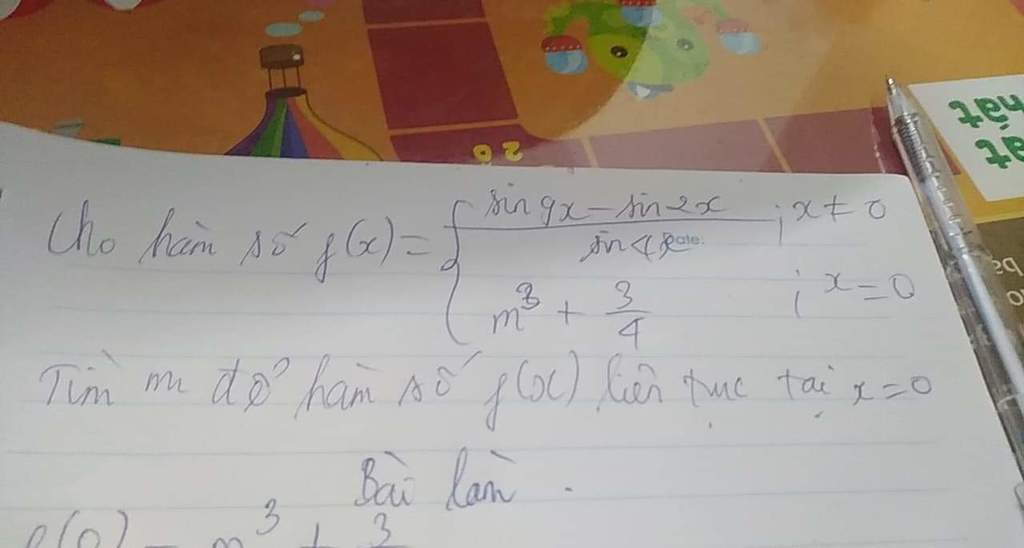 20
hất
ất
Cho hàm số f(x) = { sin9x - sin2x / sin4x ; x ≠ 0
Date:
m³ + 3/4 ; x = 0
Tìm m để hàm số f(x) liên tục tại x = 0
Bài làm .
f(0) = m³ + 3